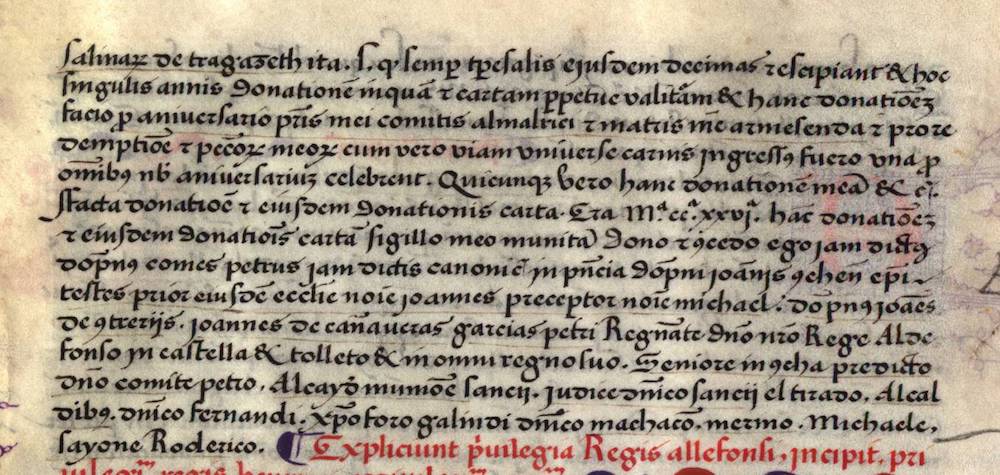 salinaꝝ de tragazeth ita. s. ꝙ semꝑ tꝑe salis ejusdem decimas ⁊ escipiant & hoc
singulis annis donationē inquā ⁊ cartam ꝑpetue valitām & hanc donatiōeꝫ
facio ꝓ aniversario pr̄is mei comitis almalrici ⁊ matris mē armesenda ⁊ pro re
demptiōe ⁊ pecc̄oꝝ meoꝝ cum vero viam universe carnis ingressꝰ fuero una ꝓ
om̄ibꝰ nb̄ aniversariuꝫ celebrent. Quicunqꝫ vero hanc donationē meā & c̄.
ffacta donatiōe ⁊ eiusdem donationis carta. Era Mª ccª xxviª. hāc donatiōeꝫ
⁊ eiusdem donatiōis cartā sigillo meo munitā dono ⁊ ꝯcedo ego jam dictꝰ
dōpnꝰ comes petrus iam dictis canonic̄ in pn̄cia dōpni joān̄is ꝯchen̄ ep̄i
testes prior eiusdē eccl̄ie noīe joannes preceptor noīe michael. dōpnꝰ joān̄es
de ꝯtrerijs. joannes de cañaveras garcias petri Regnāte dn̄o nr̄o Rege Alde
fonso in castella & tolleto & in omni regno suo. Seniore in ꝯcha predicto
dn̄o comite petro. Alcayd̄ munioē sancij. judice dn̄ico sancij el tirado. Alcal
dibꝰ. dn̄ico fernandi. xp̄oforo galindi dn̄ico machacō. mermo. Michaele,
sayone Roderico. ¶ Expliciunt pͥuilegia Regis allefonsi, incipit. pri
uilegiū regis